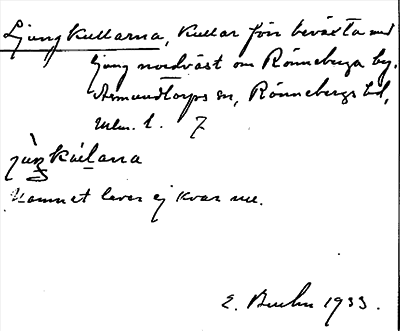 Ljungkullarna, Kullar förr beväxta med
ljung nordväst om Rönneberga by.
Asmundtorps sn, Rönnebergs hd,
Mlm. l. 7
Namnet lever ej kvar nu.
E. 1933.